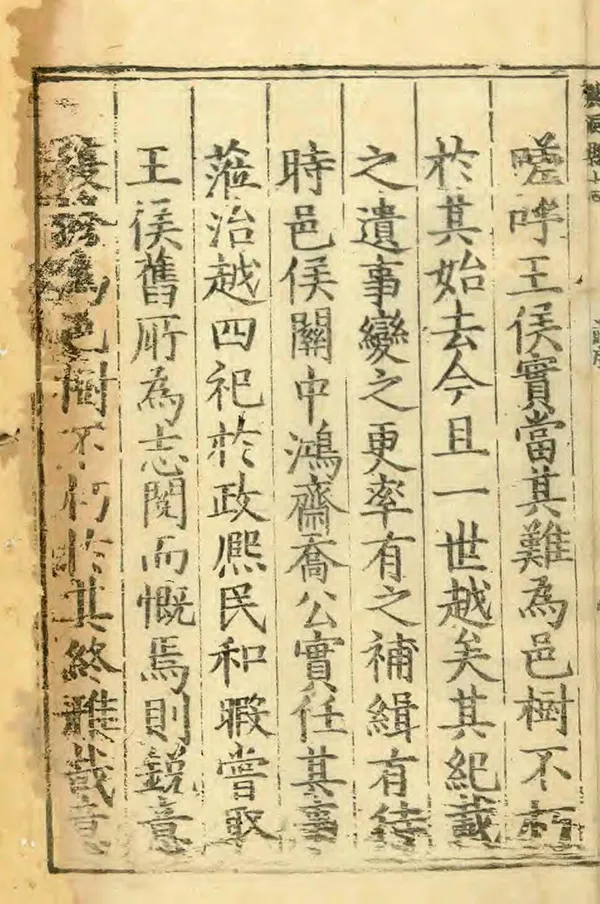 嗟呼王侯實當其難為邑樹不朽
於其始去今且一世越矣其紀載
之遺事變之更率有之補緝有待
時邑侯關中鴻齋喬公實任其事
蒞治越四祀於政熈民和暇嘗取
王侯舊所為志閱而慨焉則銳意
為邑樹不朽於其終雅哉意